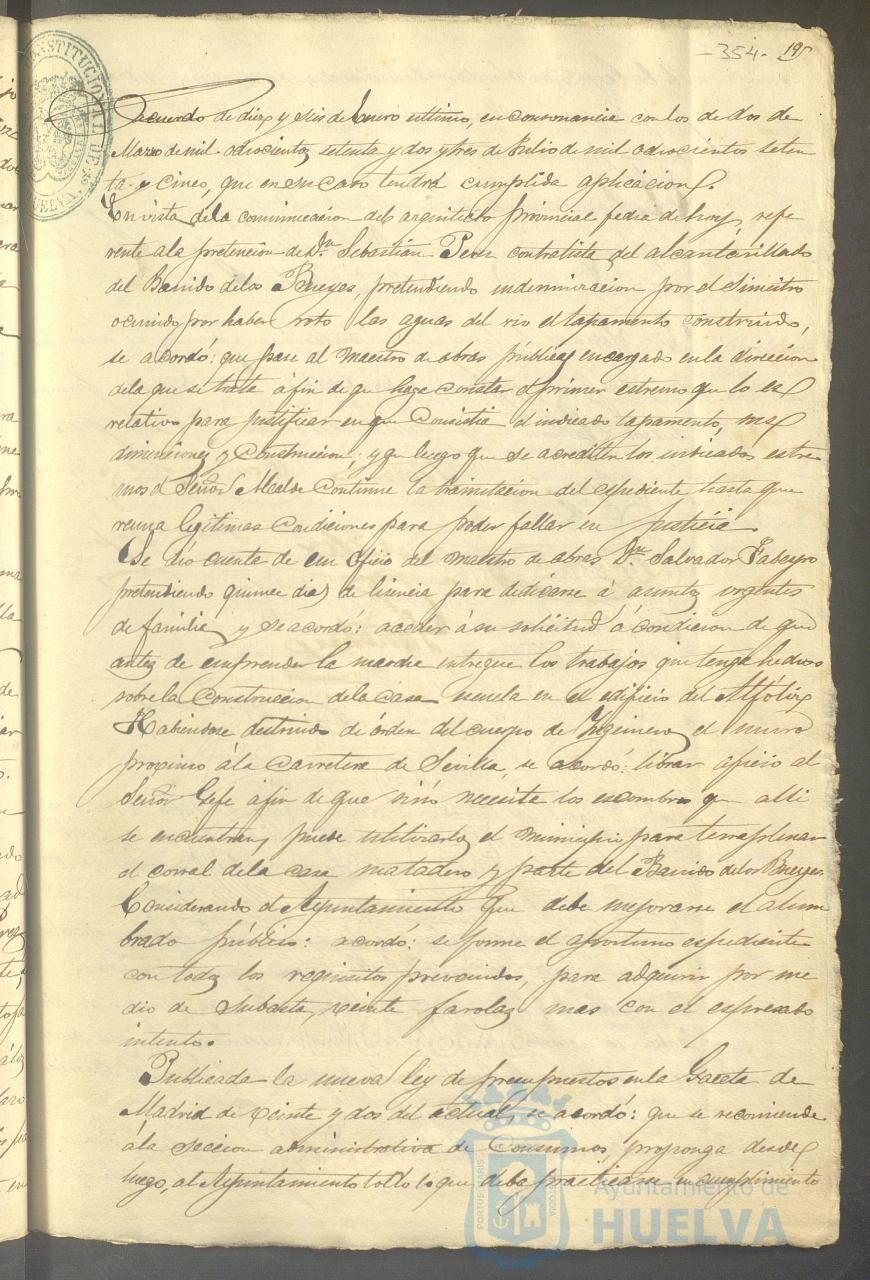 -354- 195
CONSTITUCIONAL DE HUELVA
acuerdo de diez y seis de Enero ultimo, en consonancia con los de dos de
Marzo de mil ochocientos setenta y dos y tres de Julio de mil ochocientos seten
ta y cinco, que en su caso tendrá cumplida aplicacion.
En vista de la comunicacion del arquitecto provincial fecha de hoy, refe
rente a la pretencion de Dn. Sebastián Perez contratista del alcantarillado
del Barrido de los Bueyes, pretendiendo indemnizacion por el siniestro
ocurrido por haber roto las aguas del rio el tapamento construido,
se acordó: que pase al Maestro de obras públicas encargado en la direccion
de la que se trata á fin de que haga constar el primer estremo que lo es
relativo para justificar en que consistia el indicado tapamento, sus
diminciones y construccion; y que luego que se acrediten los indicados estre
mos el Señor Alcalde continue la tramitacion del espediente hasta que
reuna legítimas condiciones para poder fallar en justicia.
Se dió cuenta de un oficio del maestro de obras Dn. Salvador Fabeyro
pretendiendo quince dias de licencia para dedicarse á asuntos urgentes
de familia, y se acordó: acceder á su solicitud á condicion de que
antes de emprender la marcha entregue los trabajos que tenga hechos
sobre la construccion de la casa escuela en el edificio del Alfóliz
Habiendose destruido de órden del cuerpo de Ingenieros el muro
proximo á la carretera de Sevilla, se acordó: librar oficio al
Señor Gefe á fin de que sinó necesita los escombros que alli
se encuentran, puede utilizarlos el municipio para terraplenar
el corral de la casa matadero y parte del Barrido de los Bueyes.
Considerando el Ayuntamiento que debe mejorarse el alum
brado público: acordó: se forme el oportuno espediente
con todos los requisitos prevenidos, para adquirir por me
dio de subasta, veinte farolas mas con el espresado
intento.
Publicada la nueva ley de presupuestos en la Gaceta de
Madrid de veinte y dos del actual, se acordó: que se recomiende
á la seccion administrativa de Consumos, proponga desde
luego, al Ayuntamiento todo lo que deba practicarse en cumplimiento
PORTUS MARIS CUSTODIA
Ayuntamiento de
HUELVA